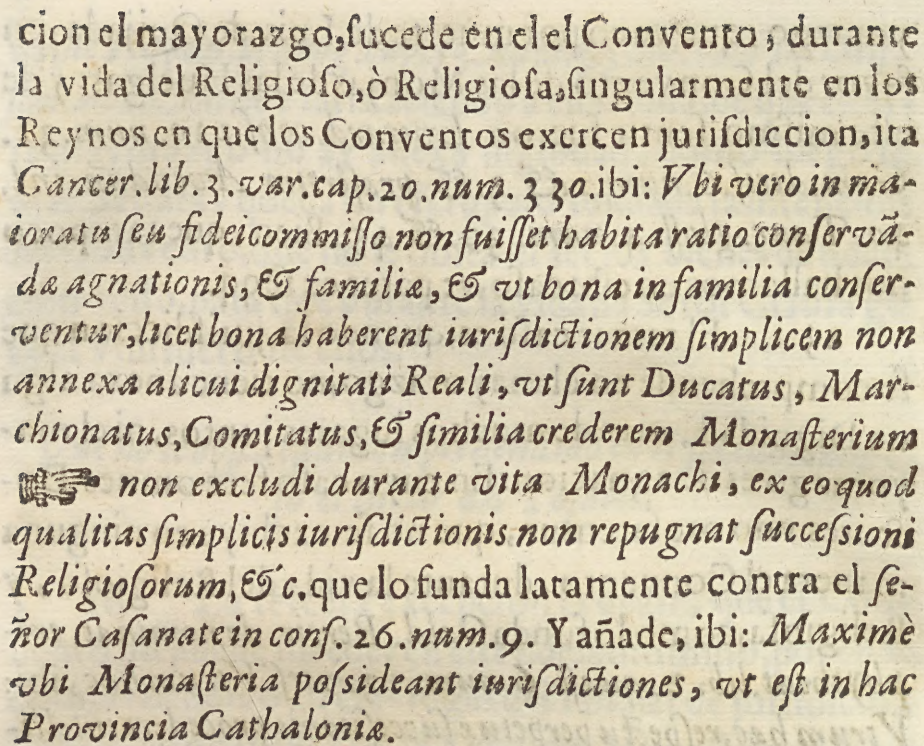 cion el mayorazgo, ſucede en el el Convento, durante
la vida del Religioſo, ò Religioſa, ſingularmente en los
Reynos en que los Conventos exercen juriſdiccion, ita
Cancer. lib. 3. var. cap. 20. num. 330. ibi: Vbi vero in ma-
ioratu ſeu fideicommiſſo non fuiſſet habita ratio conſervã-
dæ agnationis, & familiæ, & vt bona in familia conſer-
ventur, licet bona haberent iuriſdictionem ſimplicem non
annexa alicui dignitati Reali, vt ſunt Ducatus, Mar-
chionatus, Comitatus, & ſimilia crederem Monaſterium
☞ non excludi durante vita Monachi, ex eo quod
qualitas ſimplicis iuriſdictionis non repugnat ſucceſsioni
Religioſorum, & c. que lo funda latamente contra el ſe-
ñor Caſanate in conſ. 26. num. 9. Y añade, ibi: Maximè
vbi Monaſteria poſsideant iuriſdictiones, vt eſt in hac
Provincia Cathaloniæ.